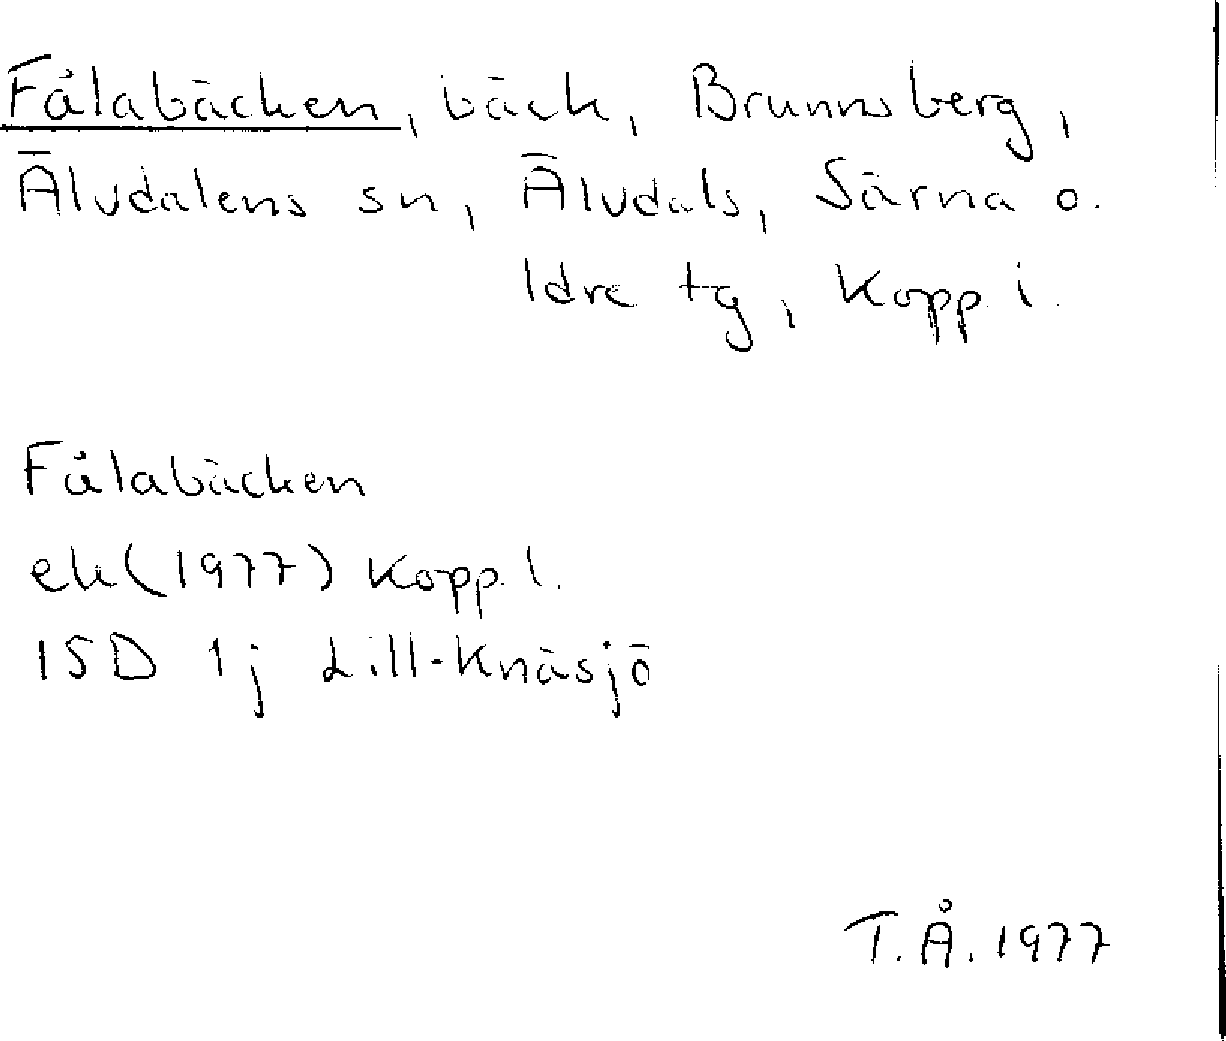 Fålabäcken, bäck, Brunnsberg,
Älvdalens sn, Älvdals, Särna o.
Idre tg, Kopp l.
Fålabäcken
ek (1977) Kopp. l.
15D 1j Lill-Knäsjö
T.Å. 1977